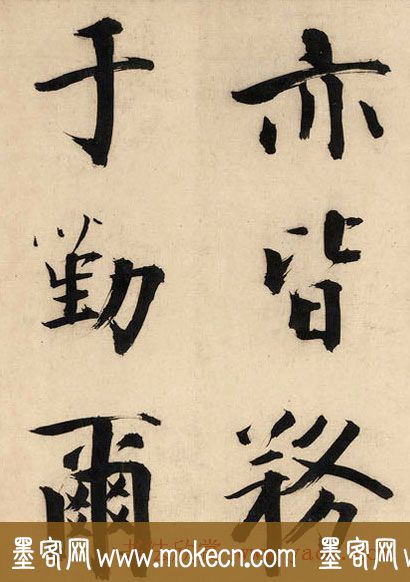 亦皆務
于勤爾
墨客网 www.mokecn.com 墨客网